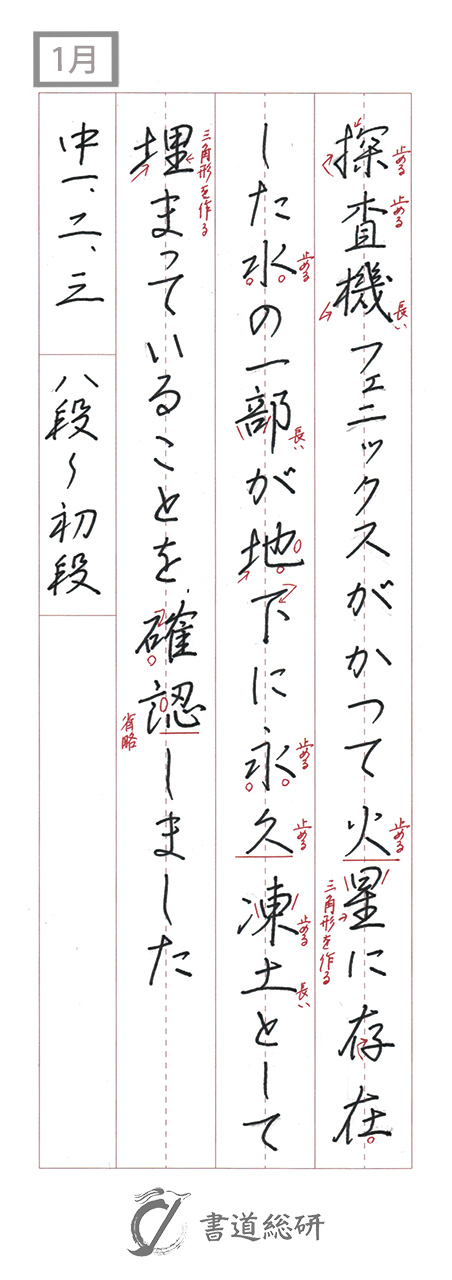 1月
探査機フェニックスがかつて火星に存在
した水の一部が地下に永久凍土として
埋まっていることを確認しました
中一、二、三
八段〜初段
止める
止める
長い
止める
三角形を作る
止める
長い
止める
止める
止める
長い
三角形を作る
省略
書道総研